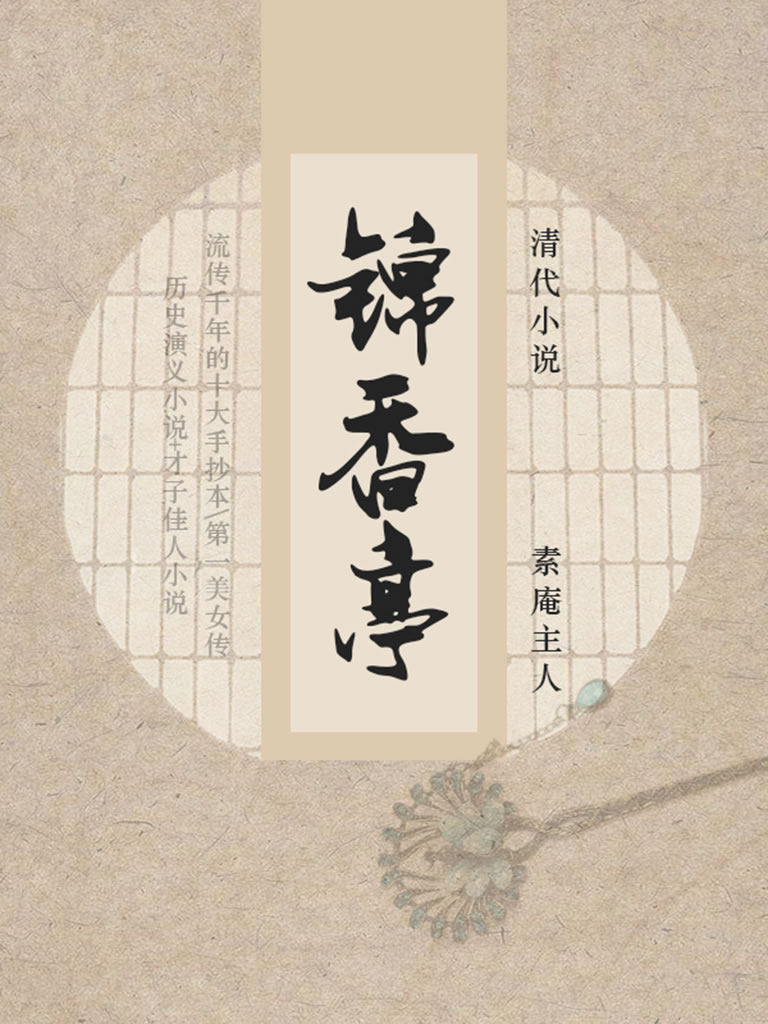 清代小说
素庵主人
锦香亭
流传千年的十大手抄本/第一美女传
历史演义小说+才子佳人小说